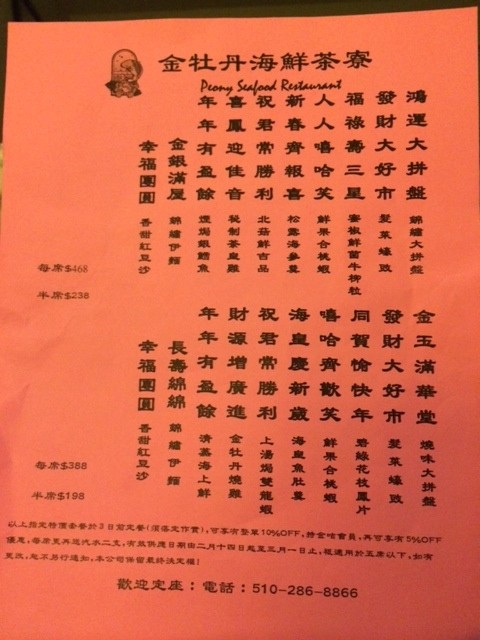 金牡丹海鮮茶寮
Peony Seafood Restaurant
鴻運大拼盤 錦繡大拼盤
發財大好市 髮菜蠔豉
福祿壽三星 蜜椒鮮菌牛柳粒
人人嘻哈笑 鮮果合桃蝦
新春齊報喜 松露海參羹
祝君常勝利 北菇鮮吉品
喜鳳迎佳音 秘制茶皇雞
年年有盈餘 煙焗銀鱈魚
金銀滿屋 錦繡伊麵
幸福團圓 香甜紅豆沙
每席$468
半席$238
金玉滿華堂 燒味大拼盤
發財大好市 髮菜蠔豉
同賀愉快年 碧綠花枝鳳片
嘻哈齊歡笑 鮮果合桃蝦
海皇慶新歲 海皇魚肚羹
祝君常勝利 上湯焗雙龍蝦
財源增廣進 金牡丹燒雞
年年有盈餘 清蒸海上鮮
長壽綿綿 錦繡伊麵
幸福團圓 香甜紅豆沙
每席$388
半席$198
以上指定特價套餐於3日前定餐(須落定作實),可享有整單10%OFF,持金咭會員,再可享有5%OFF
優惠,每席更再送汽水二支,有效供應日期由二月十四日起至三月一日止,祗適用於五席以下,如有
更改,恕不另行通知,本公司保留最終決定權!
歡迎定座:電話:510-286-8866